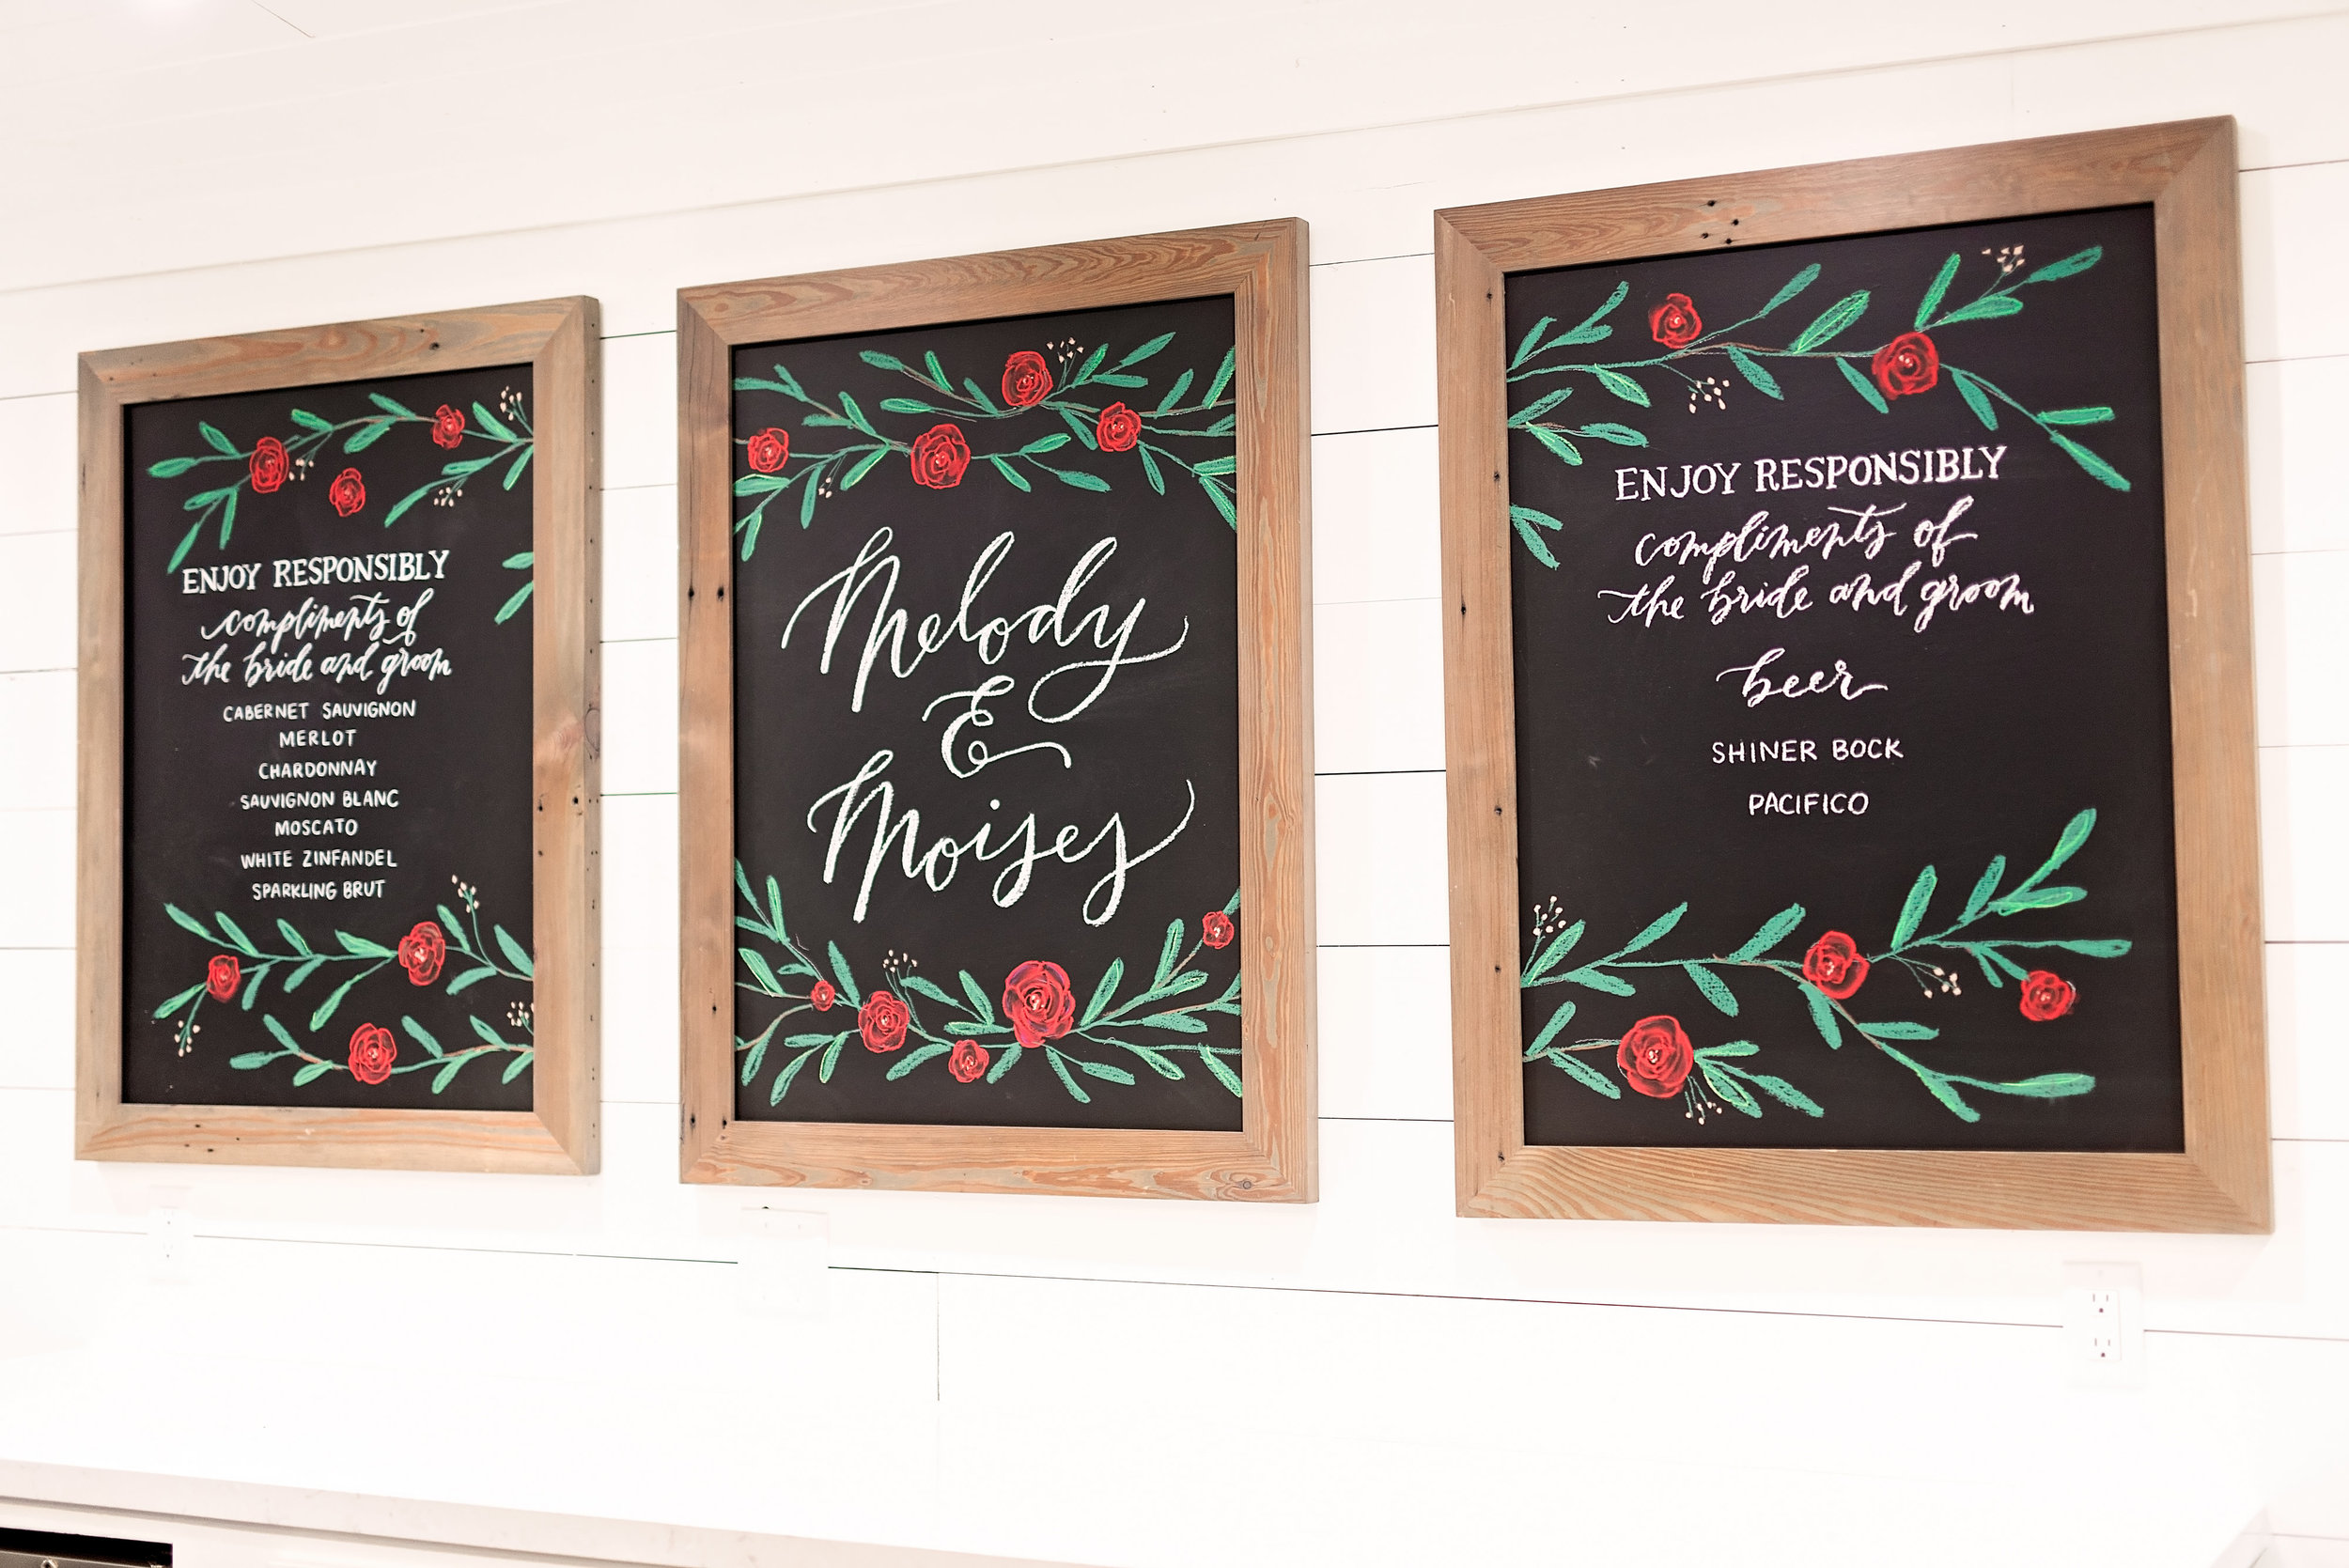 ENJOY RESPONSIBLY
compliments of
the bride and groom
CABERNET SAUVIGNON
MERLOT
CHARDONNAY
SAUVIGNON BLANC
MOSCATO
WHITE ZINFANDEL
SPARKLING BRUT
Melody
&
Moises
ENJOY RESPONSIBLY
compliments of
the bride and groom
beer
SHINER BOCK
PACIFICO